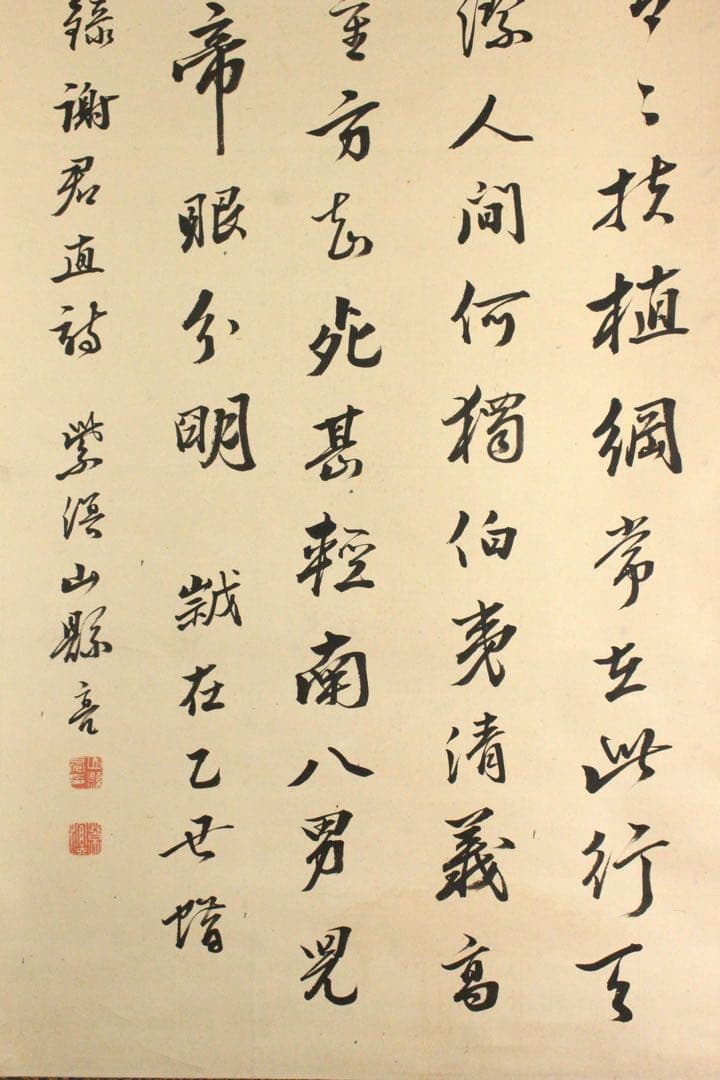 々扶植綱常在此行天
潔人間何獨伯夷清義高
重方知死甚輕南八男兒
帝眼分明 歲在乙丑蜡
錄謝君直詩 紫溟山縣亮